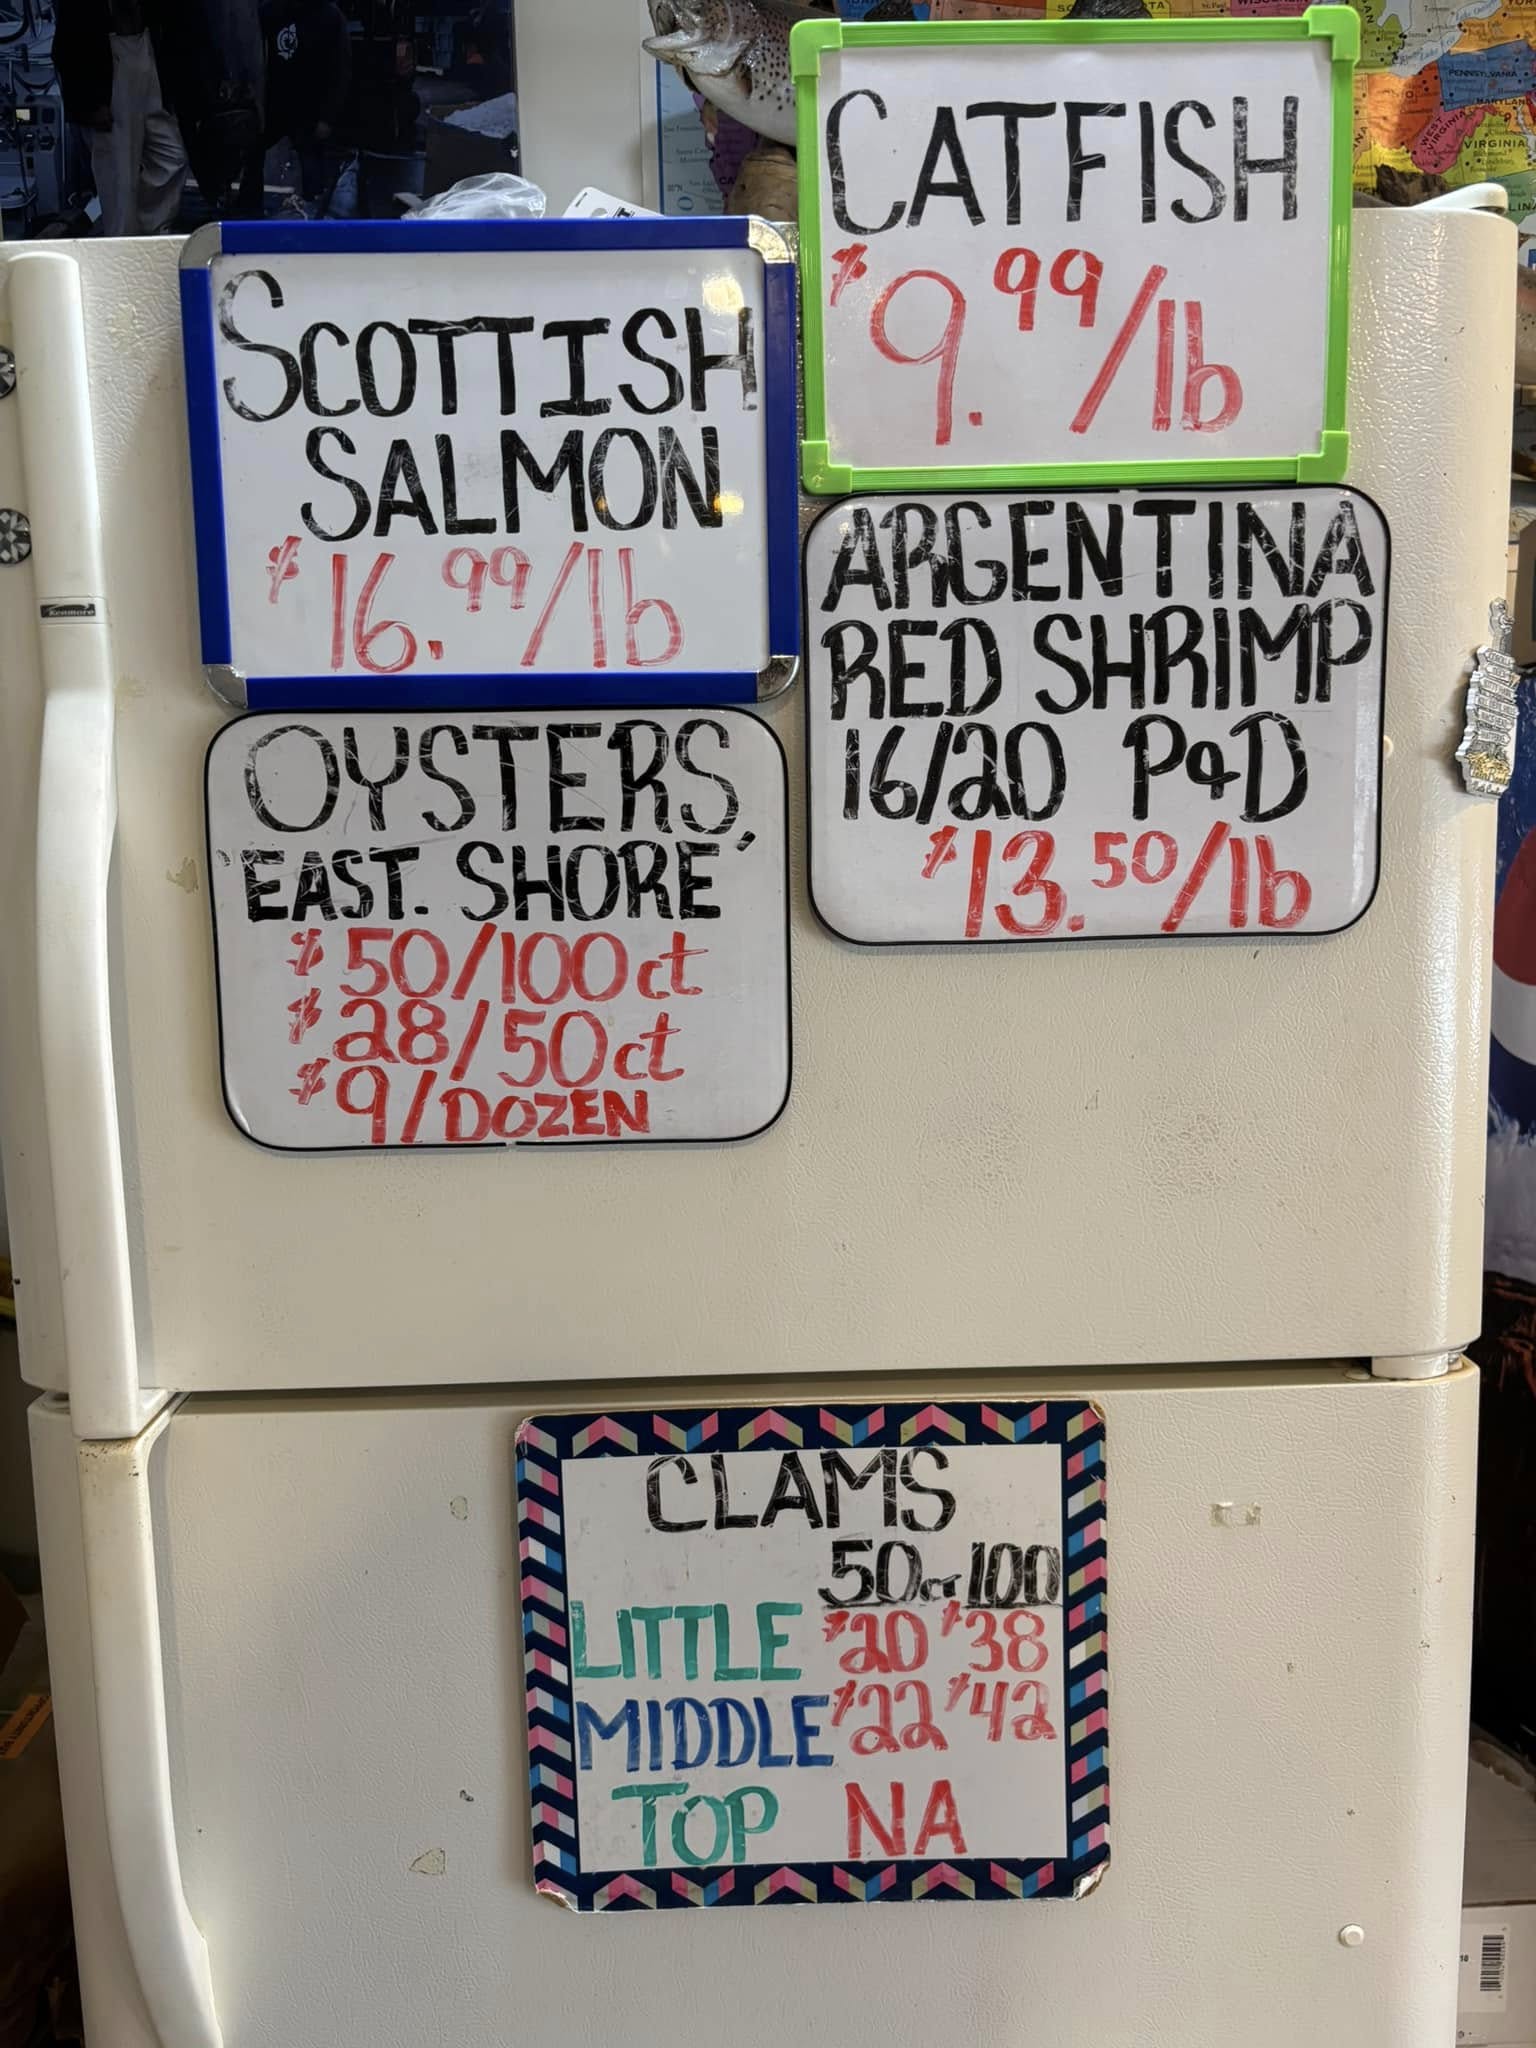 CATFISH
$9.99/lb
SCOTTISH
SALMON
$16.99/lb
ARGENTINA
RED SHRIMP
16/20 P&D
$13.50/lb
OYSTERS,
'EAST. SHORE'
$50/100ct
$28/50ct
$9/DOZEN
CLAMS
50ct 100
LITTLE $20 $38
MIDDLE $22 $42
TOP NA
Kenmore
PENNSYLVANIA
WEST VIRGINIA
VIRGINIA